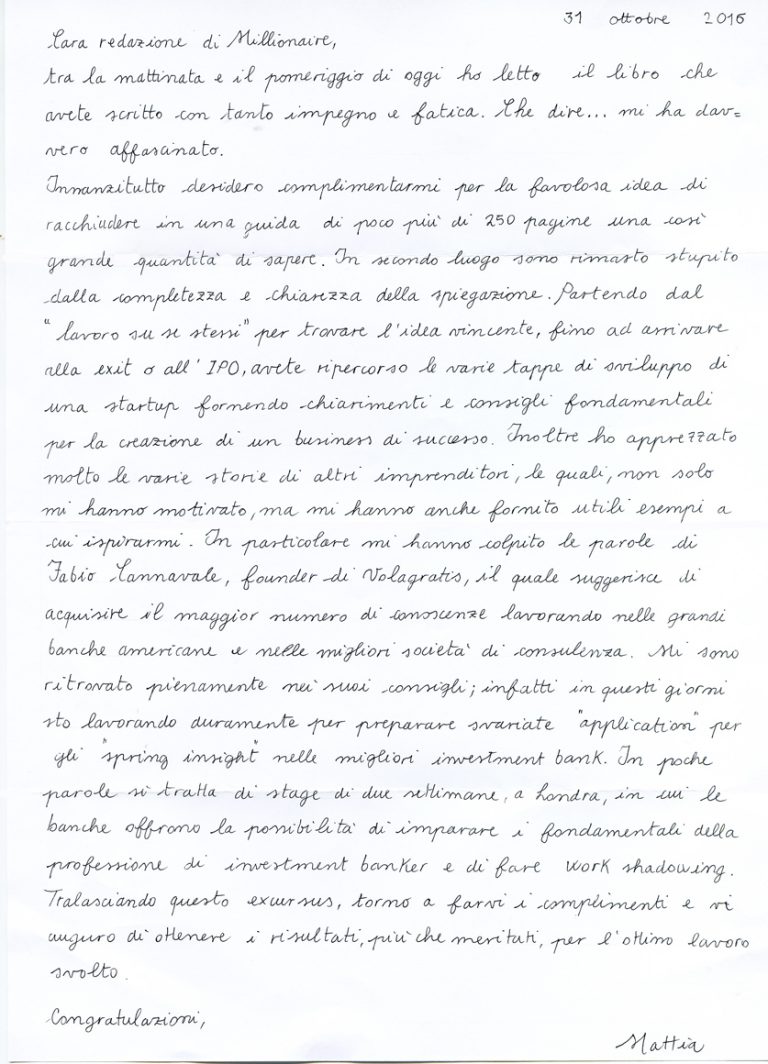 31 ottobre 2016
Cara redazione di Millionaire,
tra la mattinata e il pomeriggio di oggi ho letto il libro che
avete scritto con tanto impegno e fatica. Che dire... mi ha dav=
vero affascinato.
Innanzitutto desidero complimentarmi per la favolosa idea di
racchiudere in una guida di poco più di 250 pagine una così
grande quantità di sapere. In secondo luogo sono rimasto stupito
dalla completezza e chiarezza della spiegazione. Partendo dal
"lavoro su se stessi" per trovare l'idea vincente, fino ad arrivare
alla exit o all'IPO, avete ripercorso le varie tappe di sviluppo di
una startup fornendo chiarimenti e consigli fondamentali
per la creazione di un business di successo. Inoltre ho apprezzato
molto le varie storie di altri imprenditori, le quali, non solo
mi hanno motivato, ma mi hanno anche fornito utili esempi a
cui ispirarmi. In particolare mi hanno colpito le parole di
Fabio Cannavale, founder di Volagratis, il quale suggerisce di
acquisire il maggior numero di conoscenze lavorando nelle grandi
banche americane e nelle migliori società di consulenza. Mi sono
ritrovato pienamente nei suoi consigli; infatti in questi giorni
sto lavorando duramente per preparare svariate "application" per
gli "spring insight" nelle migliori investment bank. In poche
parole si tratta di stage di due settimane, a Londra, in cui le
banche offrono la possibilità di imparare i fondamentali della
professione di investment banker e di fare work shadowing.
Tralasciando questo excursus, torno a farvi i complimenti e vi
auguro di ottenere i risultati, più che meritati, per l'ottimo lavoro
svolto.
Congratulazioni,
Mattia